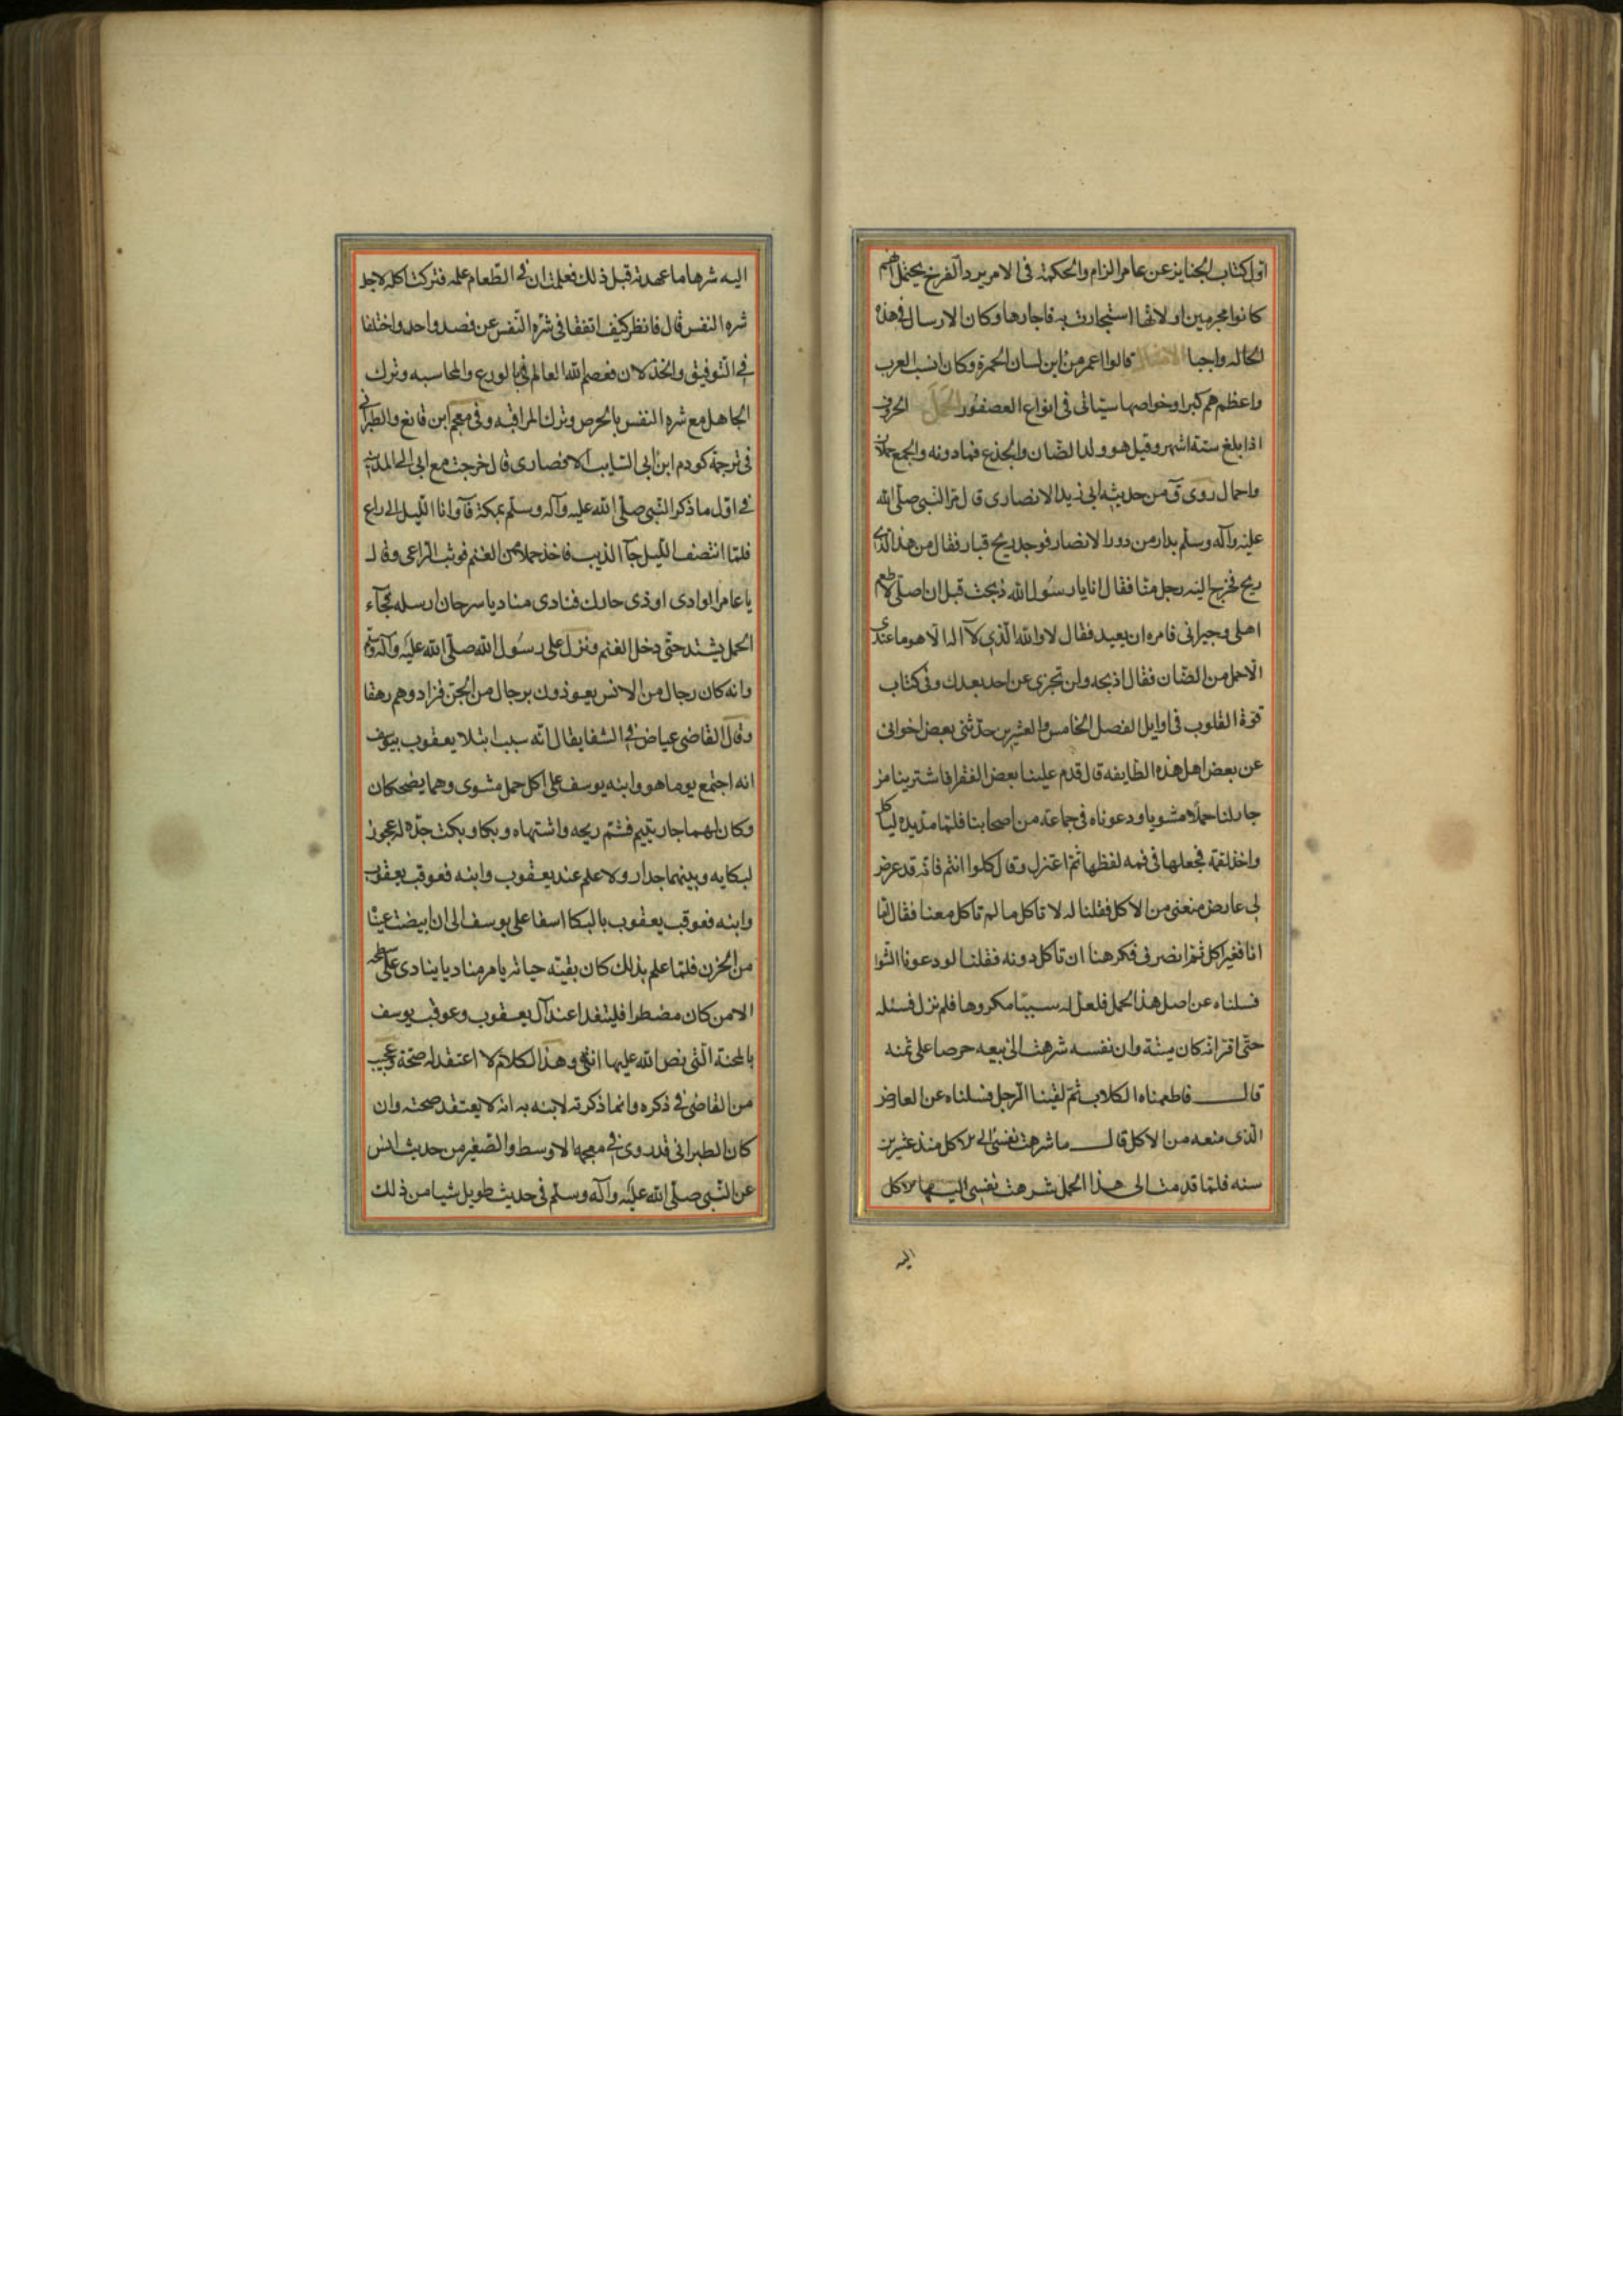 اول كتاب الجنايز عن عامر الرام والحكمة فى الامر يرد الفرخ يحتمل انهم
كانوا محرمين او لانها استجارت به فاجارها وكان الارسال فى هذه
الحاله واجبا الامثال قالوا اعمر من ابن لسان الحمرة وكان انسب العرب
واعظمهم كبرا وخواصها سياتى فى انواع العصفور الحمل الخروف
اذا بلغ ستة اشهر وقيل هو ولد الضان والجذع فما دونه والجمع حملان
واحمال روى ق من حديثه ابى زيد الانصارى قال مر النبى صلى الله
عليه وآله وسلم بدار من دور الانصار فوجد ريح قتار فقال من هذا الذى
ريح فخرج اليه رجل منا فقال انا يا رسول الله ذبحت قبل ان اصلى لاطعم
اهلى وجيرانى فامره ان يعيد فقال لا والله الذى لا اله الا هو ما عندى
الا حمل من الضان فقال اذبحه ولن تجزى عن احد بعدك وفى كتاب
قوة القلوب فى اوايل الفصل الخامس والعشرين حدثنى بعض اخوانى
عن بعض اهل هذه الطايفه قال قدم علينا بعض الفقرا فاشترينا من
جار لنا حملا مشويا ودعوناه فى جماعة من اصحابنا فلما مد يده لياكل
واخذ لقمة فجعلها فى فمه لفظها ثم اعتزل وقال كلوا انتم فانه قد عرض
لى عارض منعنى من الاكل فقلنا له لا ناكل ما لم تاكل معنا فقال اما
انا فغير اكل ثم انصرف فكرهنا ان ناكل دونه فقلنا لو دعونا الشوا
فسلناه عن اصل هذا الحمل فلعل له سببا مكروها فلم نزل نسئله
حتى اقر انه كان ميتة وان نفسه شرهت الى بيعه حرصا على ثمنه
قال فاطعمناه الكلاب ثم لقينا الرجل فسلناه عن العارض
الذى منعه من الاكل قال ما شرهت نفسى الى الاكل منذ عشرين
سنه فلما قدمت الى هذا الحمل شرهت نفسى اليها للاكل
اليه
اليه شرها ما عهدته قبل ذلك فعلمت ان فى الطعام علة فتركت اكله لاجل
شره النفس قال فانظر كيف اتفقا فى شره النفس عن قصد واحد واختلفا
فى التوفيق والخذلان فعصم الله العالم بالورع والمحاسبه وترك
الجاهل مع شره النفس بالحرص وترك المراقبه وفى معجم ابن قانع والطبرانى
فى ترجمة كردم ابن ابى السايب الانصارى قال خرجت مع ابى الى المدينة
فى اول ما ذكر النبى صلى الله عليه وآله وسلم بمكة فآوانا الليل الى راع
فلما انتصف الليل جآ الذيب فاخذ حملا من الغنم فوثب الراعى وقال
يا عامر الوادى اوذى جارك فنادى مناد يا سرحان ارسله فجآء
الحمل يشتد حتى دخل الغنم ونزل على رسول الله صلى الله عليه وآله وسلم
وانه كان رجال من الانس يعوذون برجال من الجن فزادوهم رهقا
وقال القاضى عياض فى الشفا يقال انه سبب ابتلا يعقوب بيوسف
انه اجتمع يوما هو وابنه يوسف على اكل حمل مشوى وهما يضحكان
وكان لهما جار يتيم فشتم ريحه واشتهاه وبكا وبكت جدة له عجوز
لبكايه وبينهما جدار ولا علم عند يعقوب وابنه فعوقب يعقوب
وابنه فعوقب يعقوب بالبكا اسفا على يوسف الى ان ابيضت عينا
من الحزن فلما علم بذلك كان بقيته حياته يامر مناديا ينادى على سطحه
الا من كان مضطرا فليتغدا عند آل يعقوب وعوقب يوسف
بالمحنة التى نص الله عليها انتهى وهذا الكلام لا اعتقد له صحة وعجيب
من القاضى فى ذكره وانما ذكرته لابنه به انه لا يعتقد صحته وان
كان الطبرانى قد روى فى معجمه الاوسط والصغير من حديث انس
عن النبى صلى الله عليه وآله وسلم فى حديث طويل شيا من ذلك